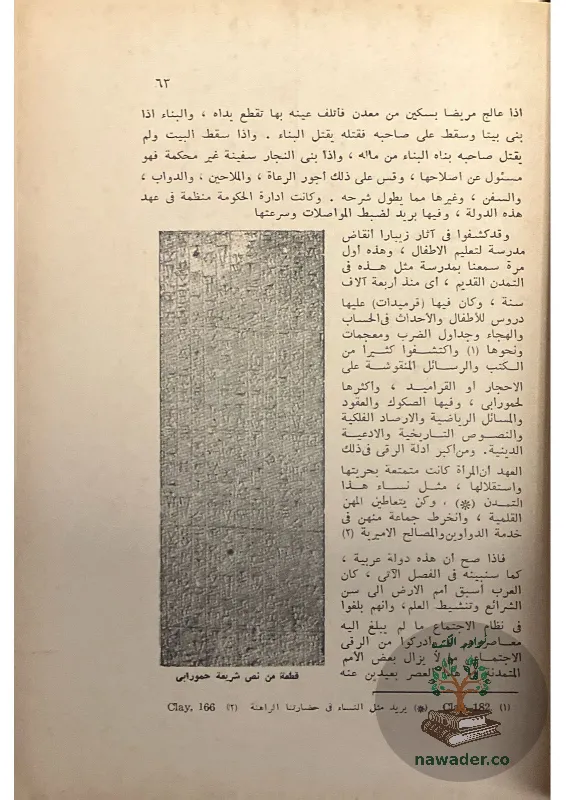 ٦٣
اذا عالج مريضا بسكين من معدن فأتلف عينه بها تقطع يداه ، والبناء اذا
بنى بيتا وسقط على صاحبه فقتله يقتل البناء . واذا سقط البيت ولم
يقتل صاحبه بناه البناء من ماله ، واذا بنى النجار سفينة غير محكمة فهو
مسئول عن اصلاحها ، وقس على ذلك أجور الرعاة ، والملاحين ، والدواب ،
والسفن ، وغيرها مما يطول شرحه . وكانت ادارة الحكومة منظمة فى عهد
هذه الدولة ، وفيها بريد لضبط المواصلات وسرعتها
وقد كشفوا فى آثار زبيارا أنقاض
مدرسة لتعليم الاطفال ، وهذه أول
مرة سمعنا بمدرسة مثل هــذه فى
التمدن القديم ، أى منذ أربعة آلاف
سنة ، وكان فيها (قرميدات) عليها
دروس للأطفال والأحداث فى الحساب
والهجاء وجداول الضرب ومعجمات
ونحوها (١) واكتشــفوا كثيرا من
الكتب والرسـائل المنقوشــة على
الاحجار او القراميــد ، واكثرها
لحمورابى ، وفيها الصكوك والعقود
والمسائل الرياضية والارصاد الفلكية
والنصــوص التــاريخية والادعيــة
الدينية . ومن اكبر ادلة الرقى فى ذلك
العهد ان المرأة كانت متمتعة بحريتها
واستقلالها ، مثــل نســاء هــذا
التمــدن (*) ، وكن يتعاطين المهن
القلمية ، وانخرط جماعة منهن فى
خدمة الدواوين والمصالح الاميرية (٢)
فاذا صح ان هذه دولة عربية ،
كما سنبينه فى الفصل الآتى ، كان
العرب أسبق أمم الارض الى سن
الشرائع وتنشيط العلم، وانهم بلغوا
فى نظام الاجتماع ما لم يبلغ اليه
ادركوا من الرقى
لا يزال بعض الأمم
العصر بعيدين عنه
قطعة من نص شريعة حمورابى
(١) Clay, 182 (*) يريد مثل النساء فى حضارتنا الراهنة (٢) Clay, 166
نوادر الكتب
nawader.co